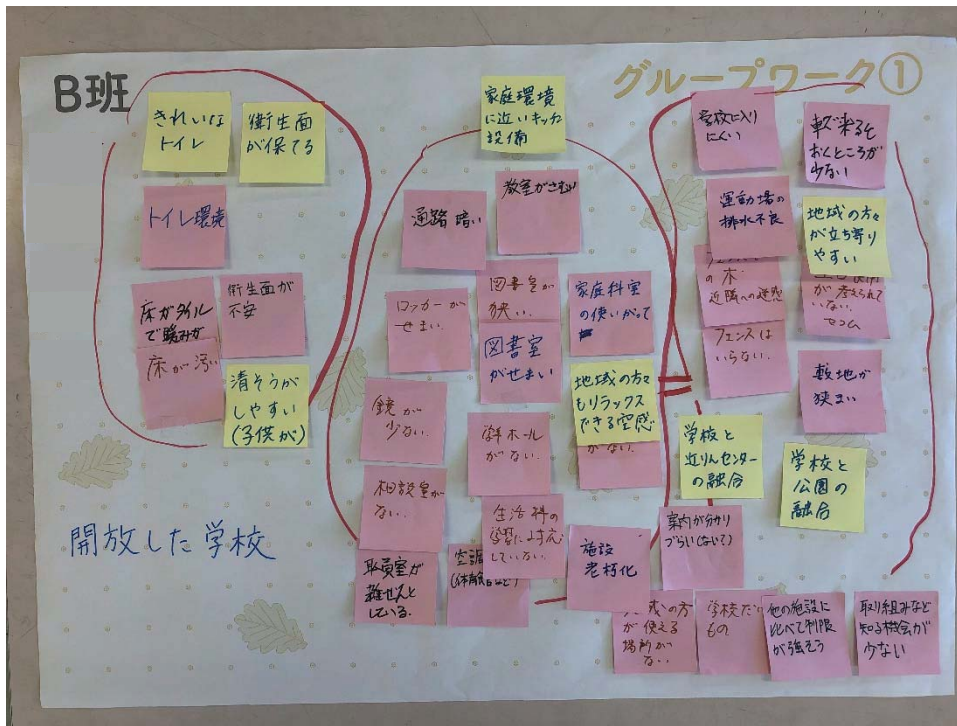 B班
グループワーク①
きれいな
トイレ
衛生面
が保てる
トイレ環境
床がタイル
で暖みが
床が汚い
衛生面が
不安
清そうが
しやすい
(子供が)
家庭環境
に近いキッチン
設備
教室がさむい
通路 暗い
ロッカーが
せまい.
図書室が
狭い.
家庭科室
の使いがって
図書室
がせまい
鏡が
少ない.
地域の方々
もリラックス
できる空感
がない.
ホール
がない.
相談室が
ない.
生活科の
学習に対応
していない.
職員室が
雑ぜんと
している.
空調
施設
老朽化
学校に入り
にくい
車で来ると
おくところが
少ない
運動場の
排水不良
地域の方々
が立ち寄り
やすい
の木・
近隣への迷惑
が考えられて
いない.
セコム
フェンスは
いらない.
敷地が
狭い
学校と
近りんセンター
の融合
学校と
公園の
融合
案内が分かり
づらい(ないて)
の方
が使える
場所が
ない
学校だ
もの
他の施設に
比べて制限
が強そう
取り組みなど
知る機会が
少ない
開放した学校